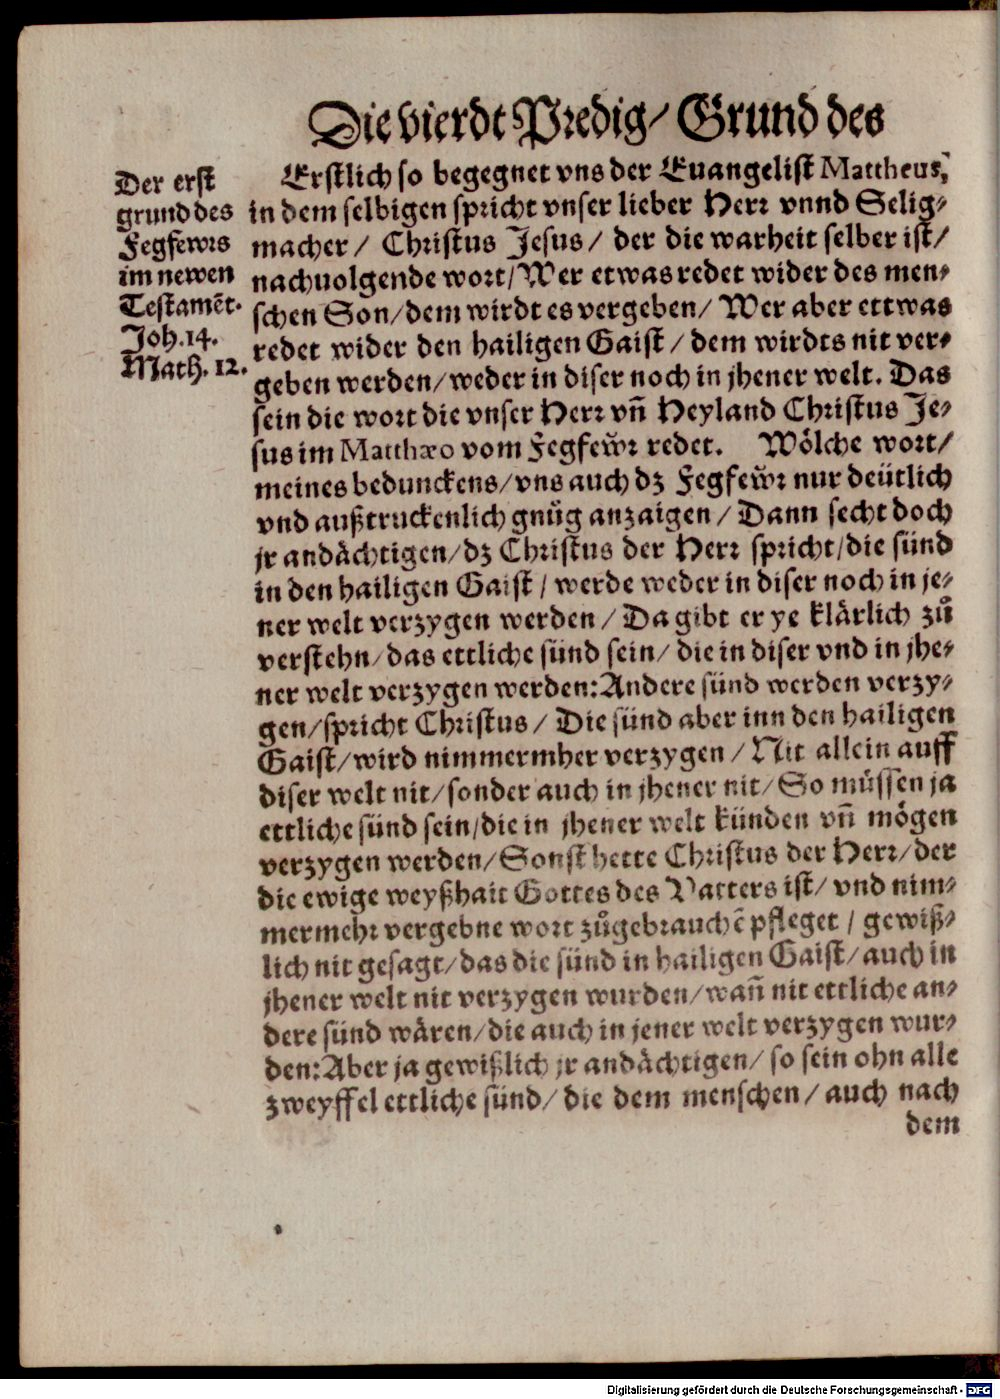 Die vierdt Predig/ Grund des
Der erst
grund des
Fegfewrs
im newen
Testamēt.
Joh.14.
Math. 12.
Erstlich so begegnet vns der Euangelist Mattheus,
in dem selbigen spricht vnser lieber Herr vnnd Selig-
macher / Christus Jesus / der die warheit selber ist/
nachuolgende wort/ Wer etwas redet wider des men-
schen Son/ dem wirdt es vergeben/ Wer aber ettwas
redet wider den hailigen Gaist / dem wirdts nit ver-
geben werden/ weder in diser noch in jhener welt. Das
sein die wort die vnser Herr vñ Heyland Christus Je-
sus im Matthæo vom Fegfew̃r redet. Wölche wort/
meines bedunckens/ vns auch dz Fegfew̃r nur deütlich
vnd außtruckenlich gnůg anzaigen / Dann secht doch
jr andächtigen/ dz Christus der Herr spricht/ die sünd
in den hailigen Gaist / werde weder in diser noch in je-
ner welt verzygen werden / Da gibt er ye klärlich zů
verstehn/ das ettliche sünd sein/ die in diser vnd in jhe-
ner welt verzygen werden: Andere sünd werden verzy-
gen/ spricht Christus / Die sünd aber inn den hailigen
Gaist/ wird nimmermher verzygen / Nit allein auff
diser welt nit/ sonder auch in jhener nit/ So müssen ja
ettliche sünd sein/ die in jhener welt künden vñ mögen
verzygen werden/ Sonst hette Christus der Herr/ der
die ewige weyßhait Gottes des Vatters ist/ vnd nim-
mermehr vergebne wort zůgebrauchē pfleget / gewiß-
lich nit gesagt/ das die sünd in hailigen Gaist/ auch in
jhener welt nit verzygen wurden/ wañ nit ettliche an-
dere sünd wären/ die auch in jener welt verzygen wur-
den: Aber ja gewißlich jr andächtigen/ so sein ohn alle
zweyffel ettliche sünd/ die dem menschen / auch nach
dem
Digitalisierung gefördert durch die Deutsche Forschungsgemeinschaft - DFG